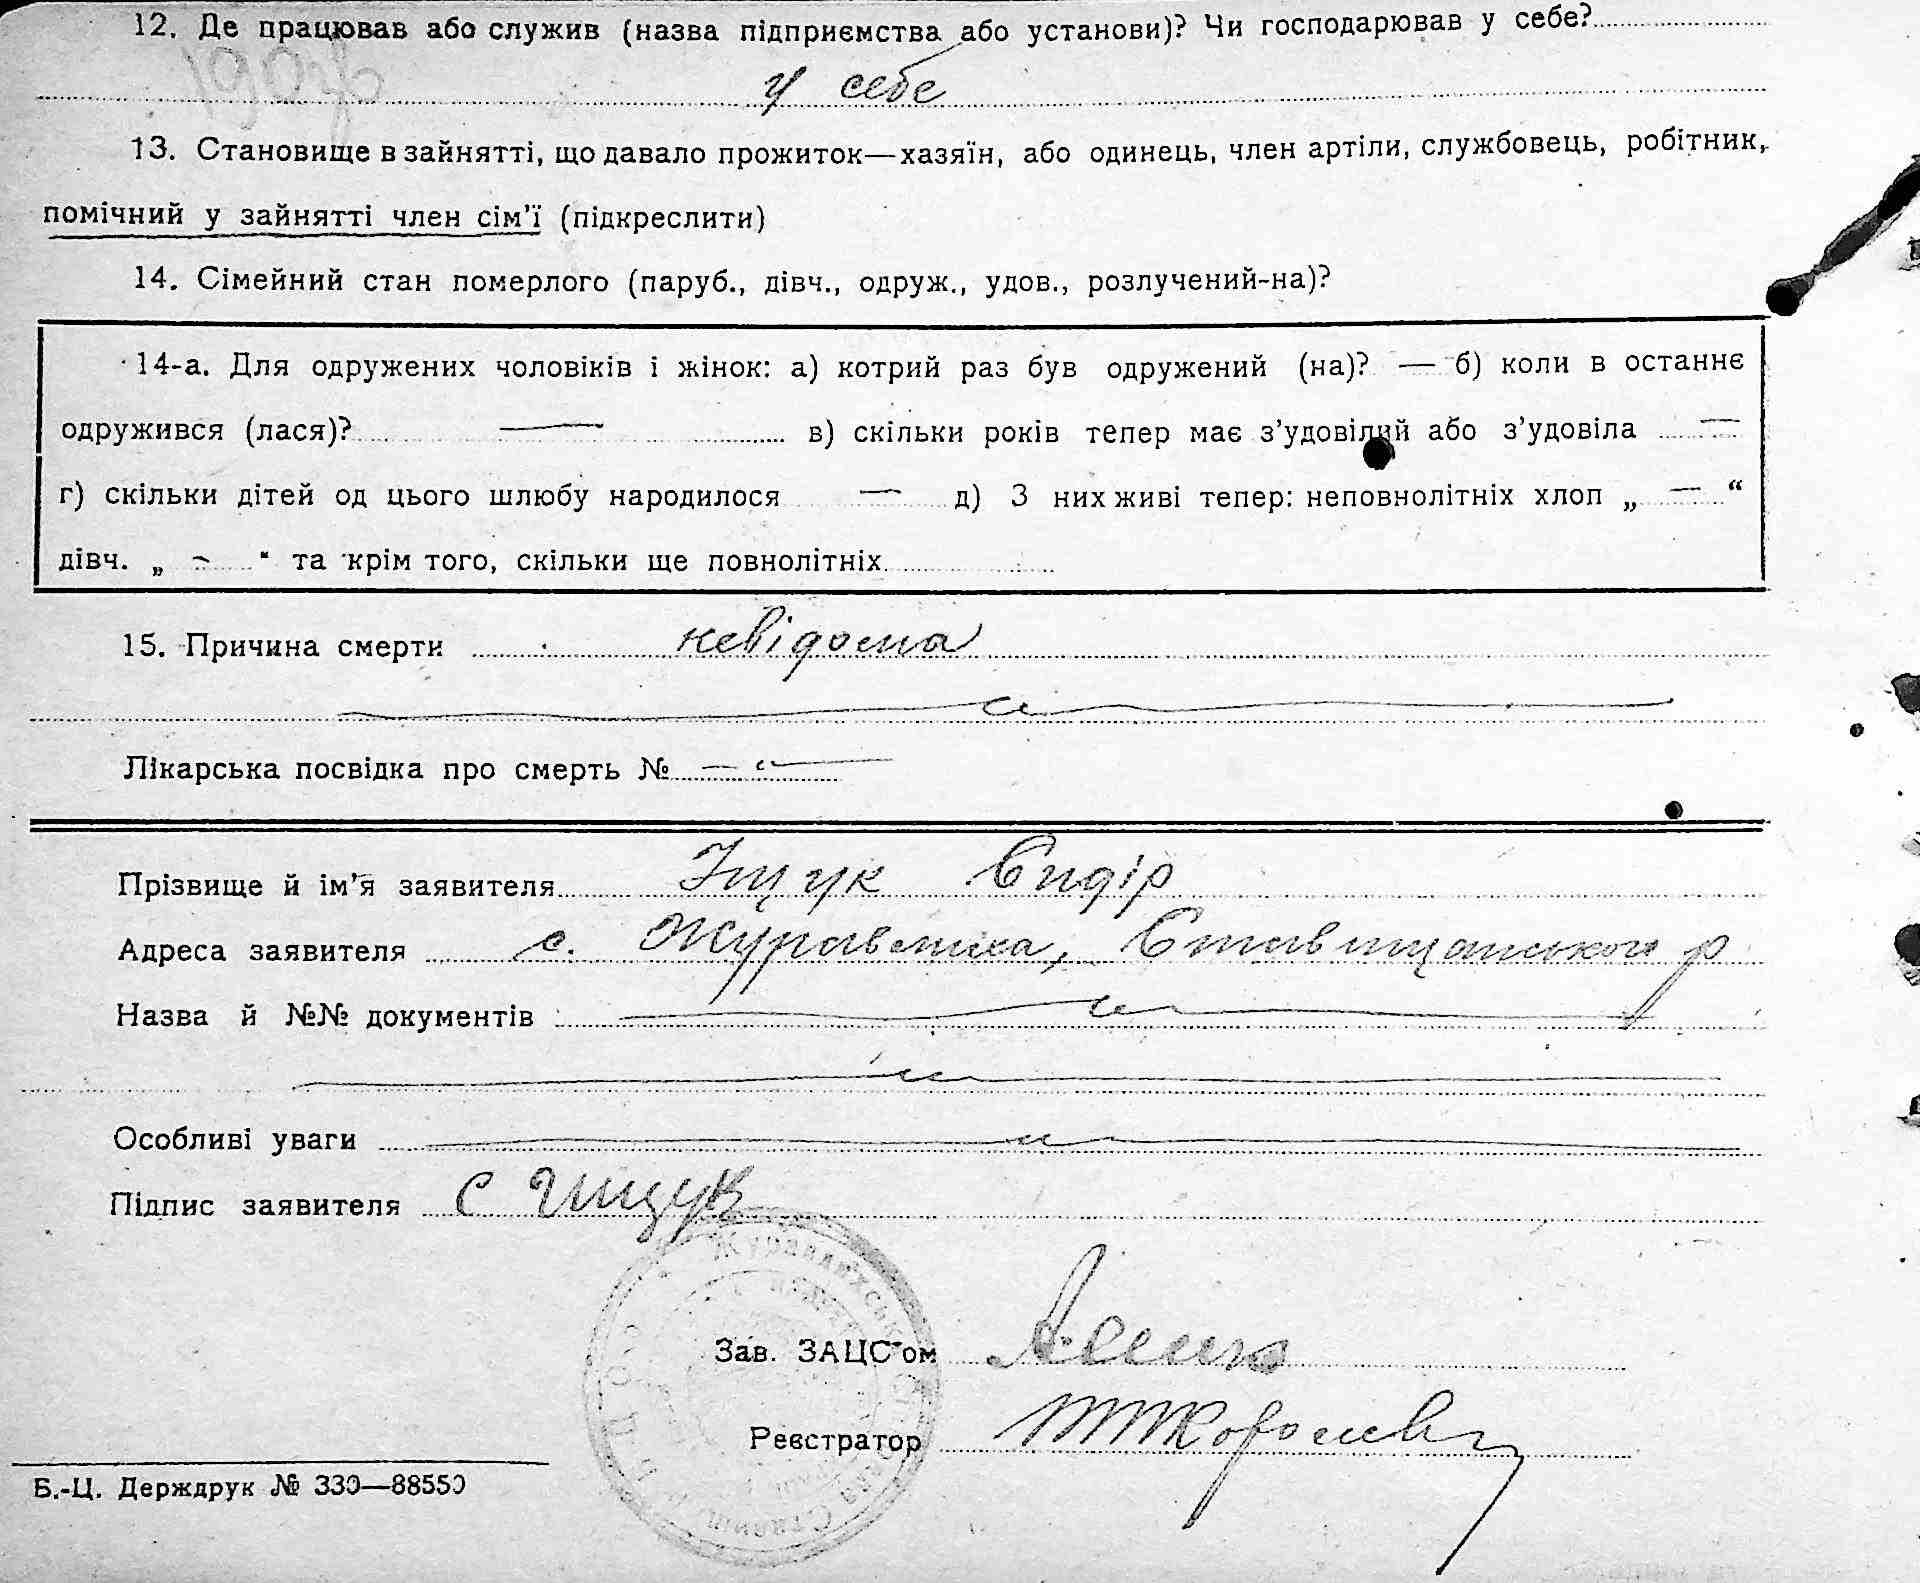 12. Де працював або служив (назва підприємства або установи)? Чи господарював у себе?
у себе
13. Становище в зайнятті, що давало прожиток—хазяїн, або одинець, член артіли, службовець, робітник,
помічний у зайнятті член сім’ї (підкреслити)
14. Сімейний стан померлого (паруб., дівч., одруж., удов., розлучений-на)?
14-а. Для одружених чоловіків і жінок: а) котрий раз був одружений (на)? — б) коли в останнє
одружився (лася)? — в) скільки років тепер має з’удовілий або з’удовіла —
г) скільки дітей од цього шлюбу народилося — д) З них живі тепер: неповнолітніх хлоп „ — “
дівч. „ — “ та крім того, скільки ще повнолітніх
15. Причина смерти невідома
Лікарська посвідка про смерть № — „ —
Прізвище й ім’я заявителя Іщук Сидір
Адреса заявителя с. Журавлиха, Ставищанського р
Назва й №№ документів — „ —
— „ —
Особливі уваги — „ —
Підпис заявителя С Іищук
Зав. ЗАЦС’ом
Реєстратор
Б.-Ц. Держдрук № 330—88550